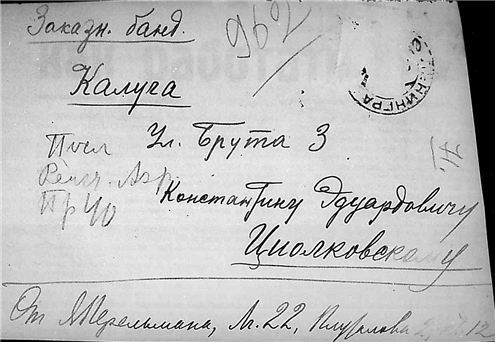 Заказн. банд.
962
Калуга
ЛЕНИНГРА
Ул. Брута 3
Константину Эдуардовичу
Циолковскому
От Я. Перельмана, Л. 22, Плуталова 2, кв. 12